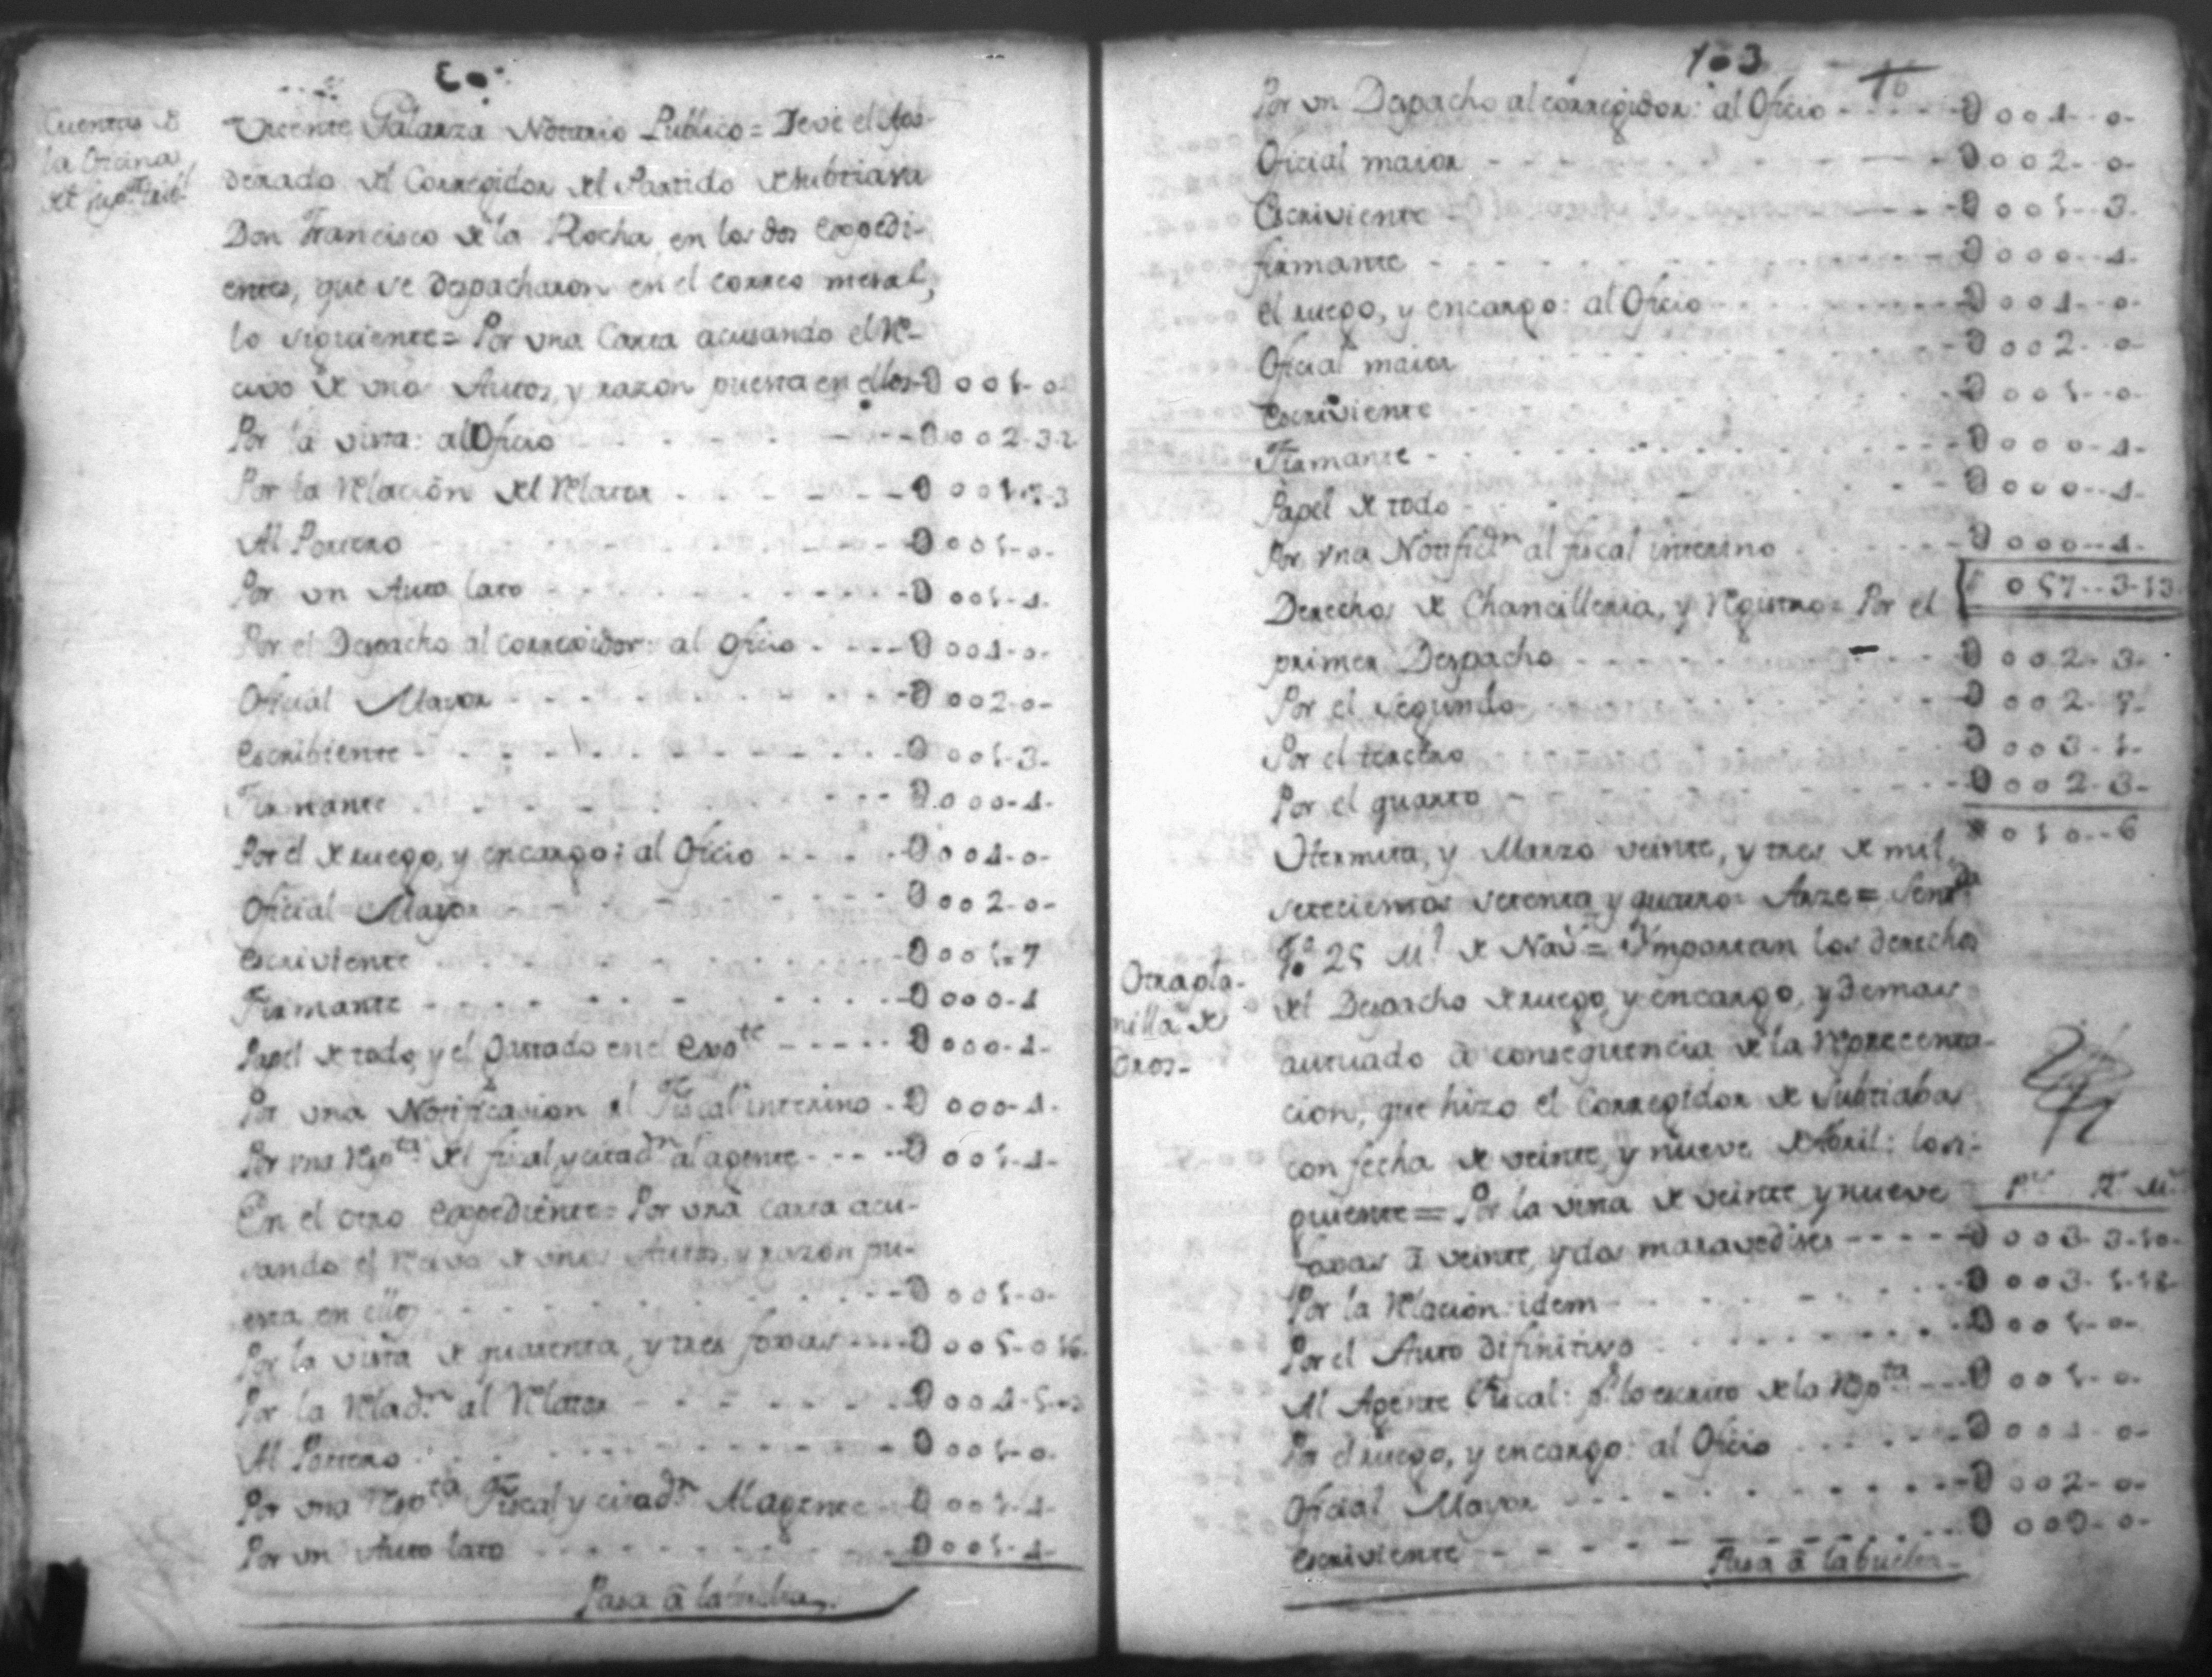 Cuentas de
la Oficina
Vicente Palarza Notario Publico = Deve el Apo-
derado del Corregidor del Partido de Subtiava
Don Francisco de la Rocha, en los dos Expedi-
entes, que se despacharon en el correo mesal,
lo siguiente = Por una Carta acusando el Re-
civo de unos Autos, y razon puesta en ellos - D 001-0
Por la vista: al Oficio - D 002-3-2
Por la Relacion del Relator - D 001-7-3
Al Portero - D 001-0-
Por un Auto lato - D 001-4-
Por el Despacho al corregidor: al Oficio - D 004-0-
Oficial Mayor - D 002-0-
Escribiente - D 001-3-
Firmante - D 000-4-
Por el de ruego, y encargo: al Oficio - D 004-0-
Oficial Mayor - D 002-0-
Escriviente - D 001-7
Firmante - D 000-4
Papel de todo, y el gastado en el Expte - D 000-4-
Por una Notificasion al Fiscal interino - D 000-4-
Por una Rpta del fiscal, y citadn al agente - D 001-4-
En el otro Expediente = Por una carta acu-
sando el Recivo de unos Autos, y razon pu-
esta en ellos - D 001-0-
Por la vista de quarenta, y tres foxas - D 005-0 16-
Por la Reladn al Relator - D 004-5-
Al Portero - D 001-0-
Por una Rpta Fiscal y citadn Al agente - D 001-4-
Por un Auto lato - D 001-4-
Pasa á la buelta
103
Por un Despacho al corregidor: al Oficio - D 004-0-
Oficial maior - D 002-0-
Escriviente - D 001-3-
firmante - D 000-4-
El ruego, y encargo: al Oficio - D 004-0-
Oficial maior - D 002-0-
Escriviente - D 001-0-
Firmante - D 000-4-
Papel de todo - D 000-4-
Por una Notificdn al fiscal interino - D 000-4-
057-3-13
Derechos de Chancilleria, y Registro = Por el
primer Despacho - D 002-3-
Por el segundo - D 002-7-
Por el tercero - D 003-1-
Por el quarto - D 002-3-
010-6
Hermita, y Marzo veinte, y tres de mil
setecientos setenta y quatro = Arze =
Otra pla-
nilla de
dros-
Importan los derechos
del Despacho de ruego, y encargo, y demas
actuado á consequencia de la Reprecenta-
cion, que hizo el Corregidor de Subtiaba
con fecha de veinte, y nueve de Abril: lo si-
guiente = Por la vista de veinte, y nueve
foxas á veinte, y dos maravedises - D 003-3-10-
Por la Relacion: idem - D 003-1-18-
Por el Auto difinitivo - D 001-0-
Al Agente Fiscal: pr lo escrito de la Rpta - D 001-0-
Por el ruego, y encargo: al Oficio - D 004-0-
Oficial Mayor - D 002-0-
Escriviente
Pasa á la buelta-